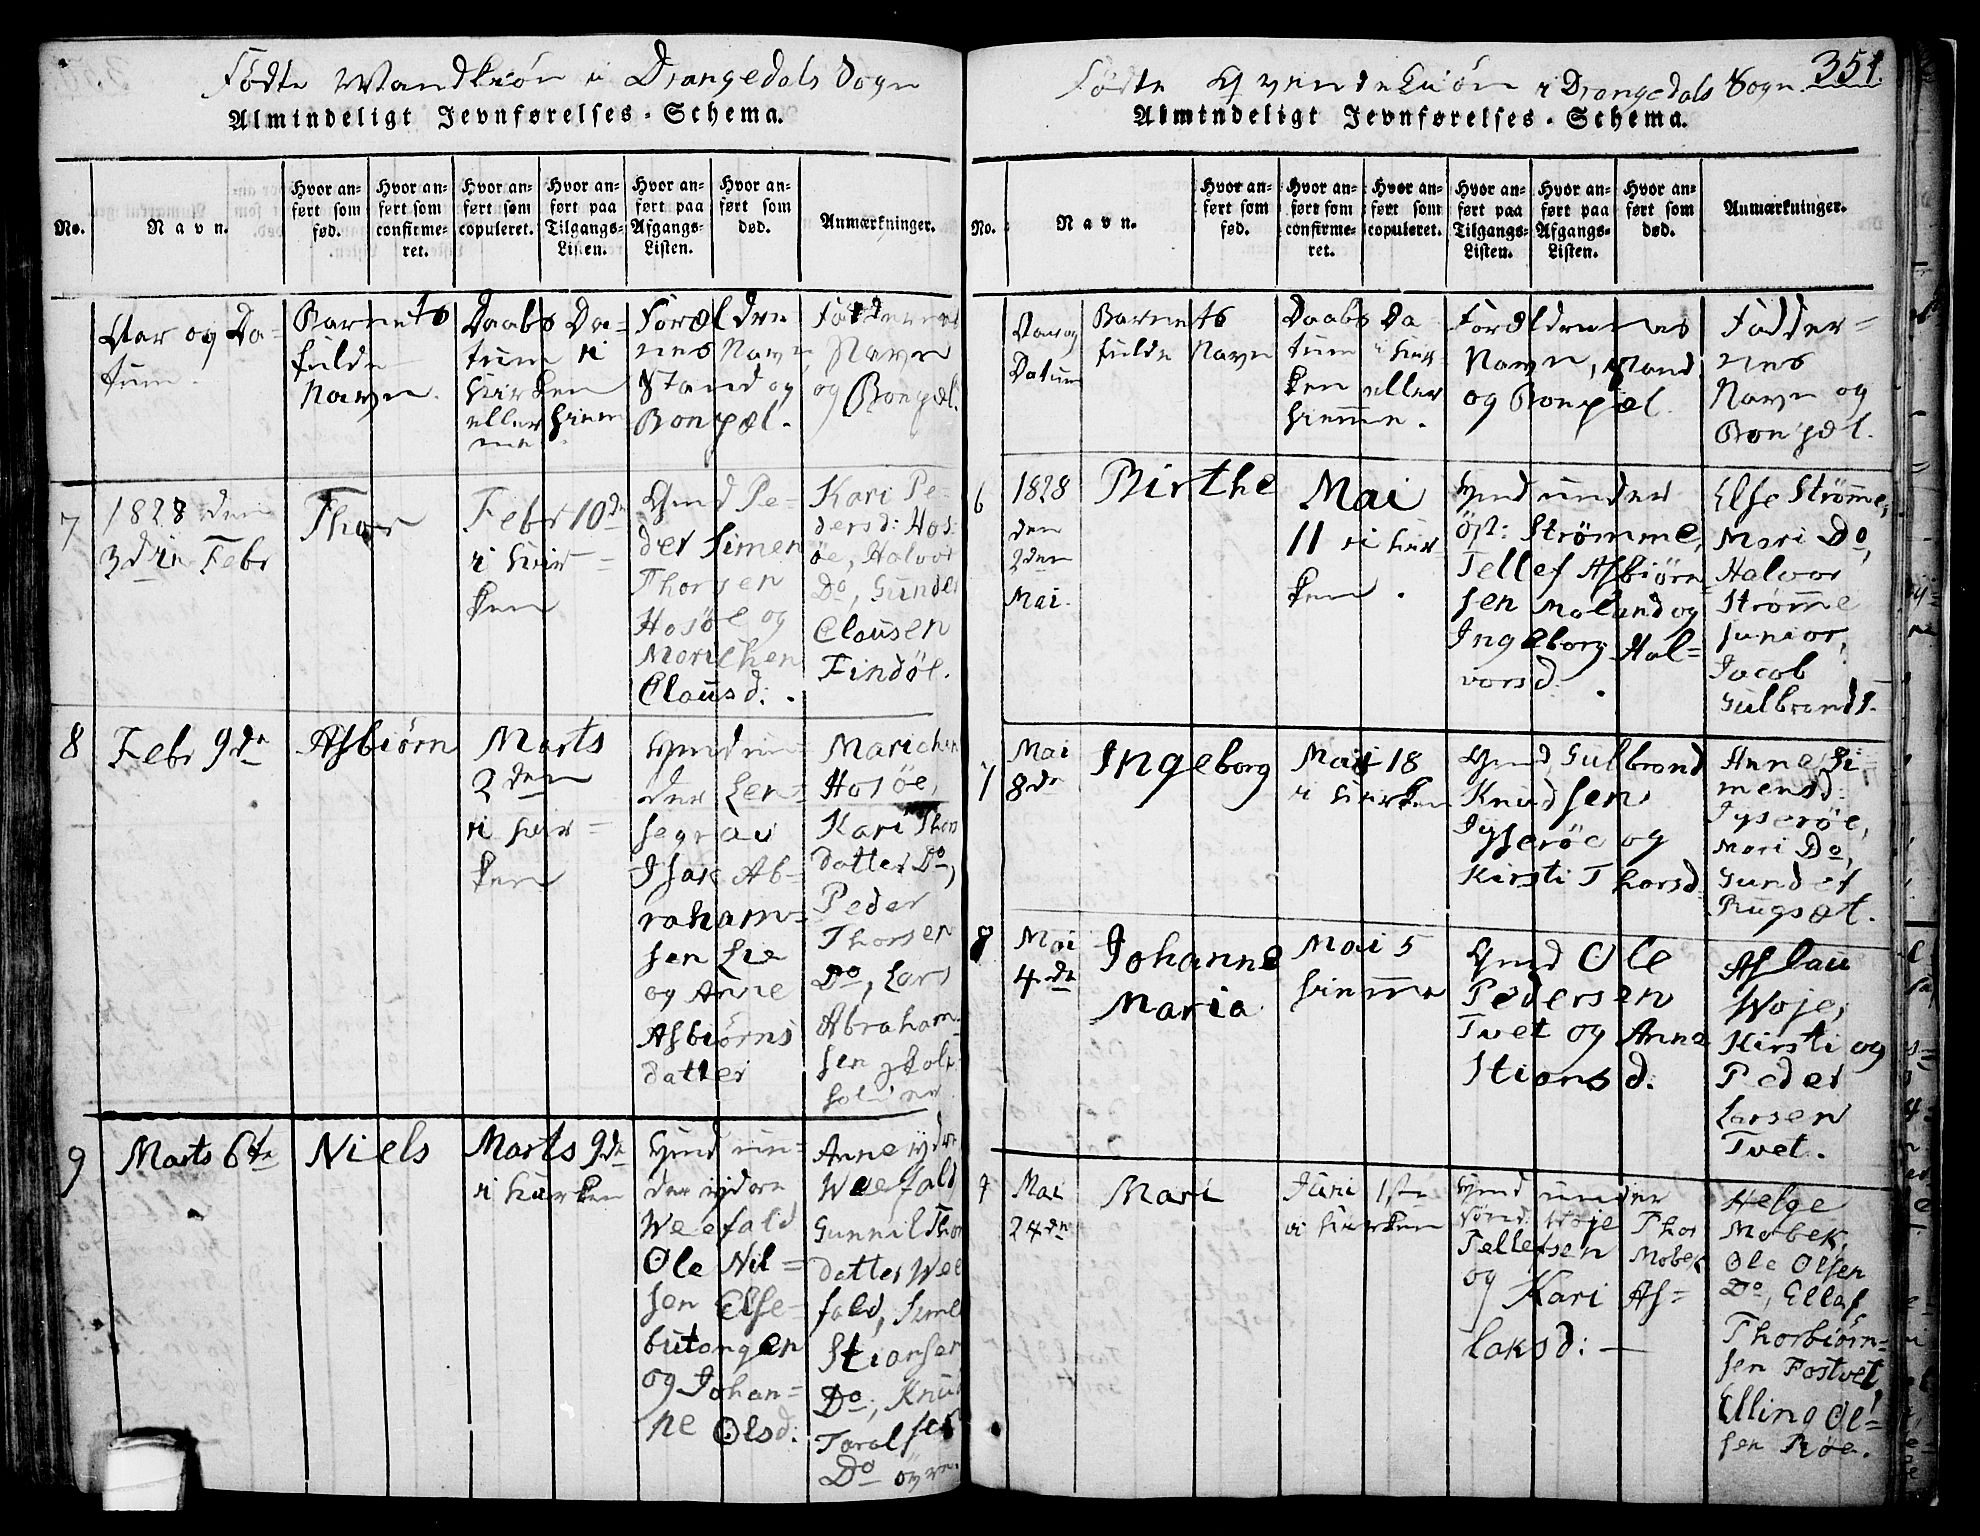 Fødte Mandkiøn i Drangedals Sogn
Almindeligt Jevnførelses-Schema.
No.
Navn.
Hvor anført som fød.
Hvor anført som confirmeret.
Hvor anført som copuleret.
Hvor anført paa Tilgangs-Listen.
Hvor anført paa Afgangs-Listen.
Hvor anført som død.
Anmærkninger.
Aar og Da=
tum.
Barnets
fulde
Navn.
Daabs Da=
tum i
Kirken
eller hiem
me.
Forældre
nes Navn
Stand og
Bopæl.
Faddernes
Navn
og Bopæl.
7
1828 den
3die Febr
Thor
Febr 10de
i Kir=
ken
Gmd Pe=
der Simen
Thorsen
Hosöe og
Marichen
Clausd:.
Kari Pe=
dersd: Hos=
öe, Halvor
Do, Gunder
Clausen
Findöl.
8
Febr 9de
Asbiörn
Marts
2den
i Kir=
ken
Gmd un=
der
Isak Ab=
raham=
sen Lie
og Anne
Asbiörns
datter
Marichen
Hosöe,
Kari Thors
datter Do,
Peder
Thorsen
Do, Lars
Abraham=
sen
9
Marts 6te
Niels
Marts 9de
i Kirken
Gmd un=
der ydre
Weefald
Ole Nil=
sen Else=
butangen
og Johan=
ne Olsd.
Anne ydre
Weefald
Gunnil Thors
datter Wee
fald,
Stiansen
Do, Knud
Taralsen
Do öyre.
351.
Fødte Qvindekiön i Drangedals Sogn.
Almindeligt Jevnførelses-Schema.
No.
Navn.
Hvor anført som fød.
Hvor anført som confirmeret.
Hvor anført som copuleret.
Hvor anført paa Tilgangs-Listen.
Hvor anført paa Afgangs-Listen.
Hvor anført som død.
Anmærkninger.
Aar og
Datum
Barnets
fulde Navn
Daabs Da
tum i Kir
ken eller
hiemme.
Forældrenes
Navn, Stand
og Bopæl.
Fadder=
nes
Navn og
Bopæl.
6
1828
den
2den
Mai.
Birthe
Mai
11 i Kir
ken.
Gmd under
öst: Strömme,
Tellef Asbiörn
sen Moland og
Ingeborg Hal=
vorsd.
Else Strömme,
Mari Do,
Halvor
Strömme
junior,
Jacob
Gulbrands.
7
Mai
8de
Ingeborg
Mai 18
i Kirken
Gmd Gulbrand
Knudsen
Jyseröe og
Kirsti Thorsd
Anne Si
mensd:
Jyseröe,
Mari Do,
Gunder
Rugsæt.
8
Mai
4de
Johanne
Maria
Mai 5
hiemme
Gmd Ole
Pedersen
Tvet og Anne
Stiansd.
Aslau
Woje,
Kirsti og
Peder
Larsen
Tvet.
9
Mai
24de
Mari
Juni 1ste
i Kirken
Gmd under
Nörd. Woje Thor
Tellefsen Mobek
og Kari As=
laksd:
Helge
Mobek,
Ole Olsen
Do, Ellef
Thorbiörn=
sen Fostvet,
Elling Ol=
sen Röe.